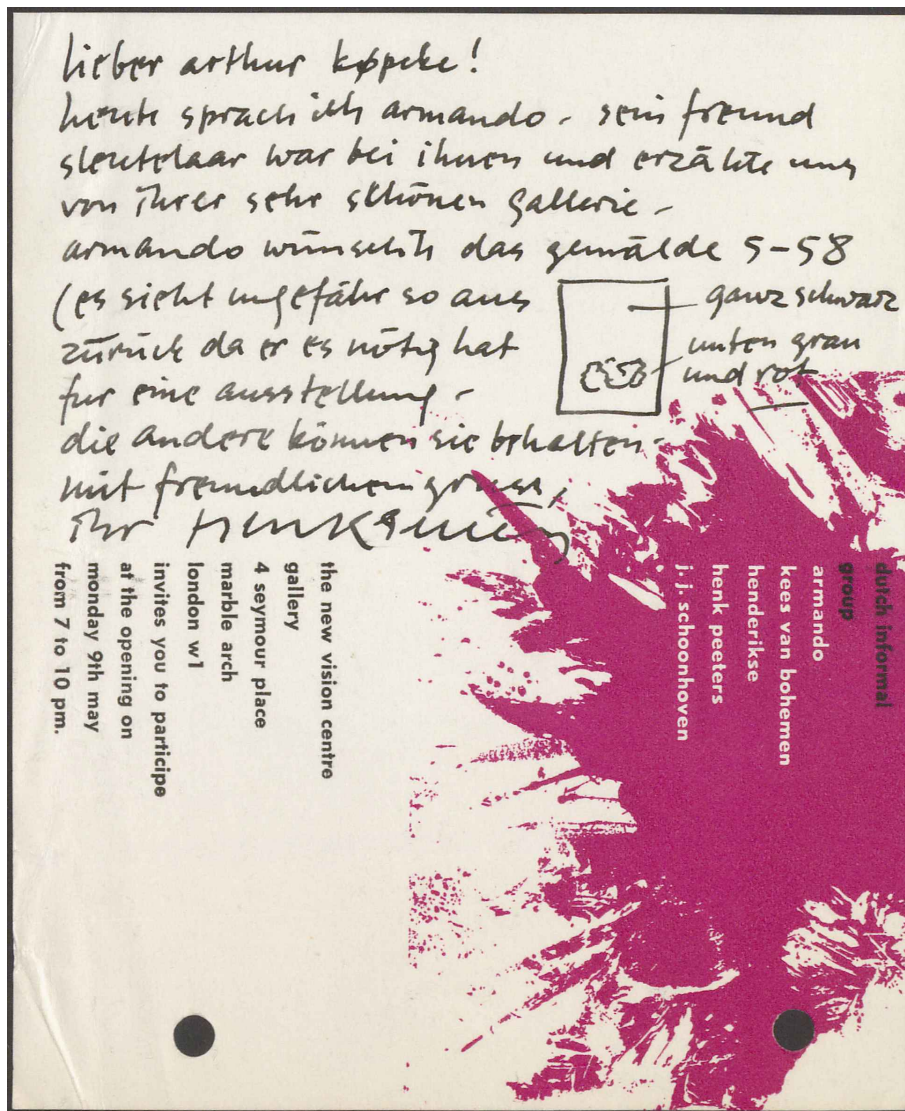 lieber arthur køpcke!
heute sprach ich armando - sein freund
sleutelaar war bei ihnen und erzählte uns
von ihrer sehr schönen gallerie -
armando wünscht das gemälde 5-58
(es sieht ungefähr so aus
ganz schwarz
unten grau
und rot
zürück da er es nötig hat
fur eine ausstellung -
die andere können sie behalten -
mit freundlichem gruss,
ihr henk
dutch informal
group
armando
kees van bohemen
henderikse
henk peeters
j. j. schoonhoven
the new vision centre
gallery
4 seymour place
marble arch
london w1
invites you to participe
at the opening on
monday 9th may
from 7 to 10 pm.